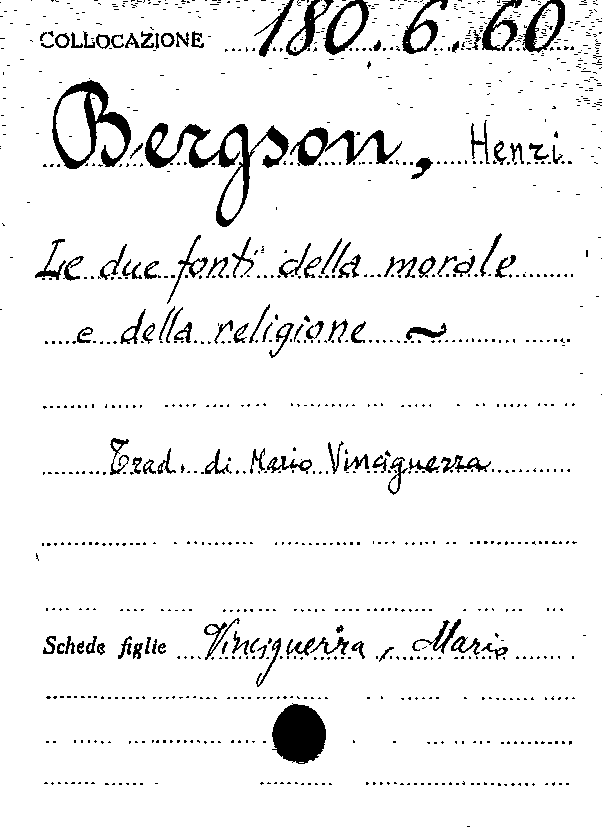 COLLOCAZIONE 180.6.60
Bergson, Henri
Le due fonti della morale
e della religione ~
Trad. di Mario Vinciguerra
Schede figlie Vinciguerra, Mario